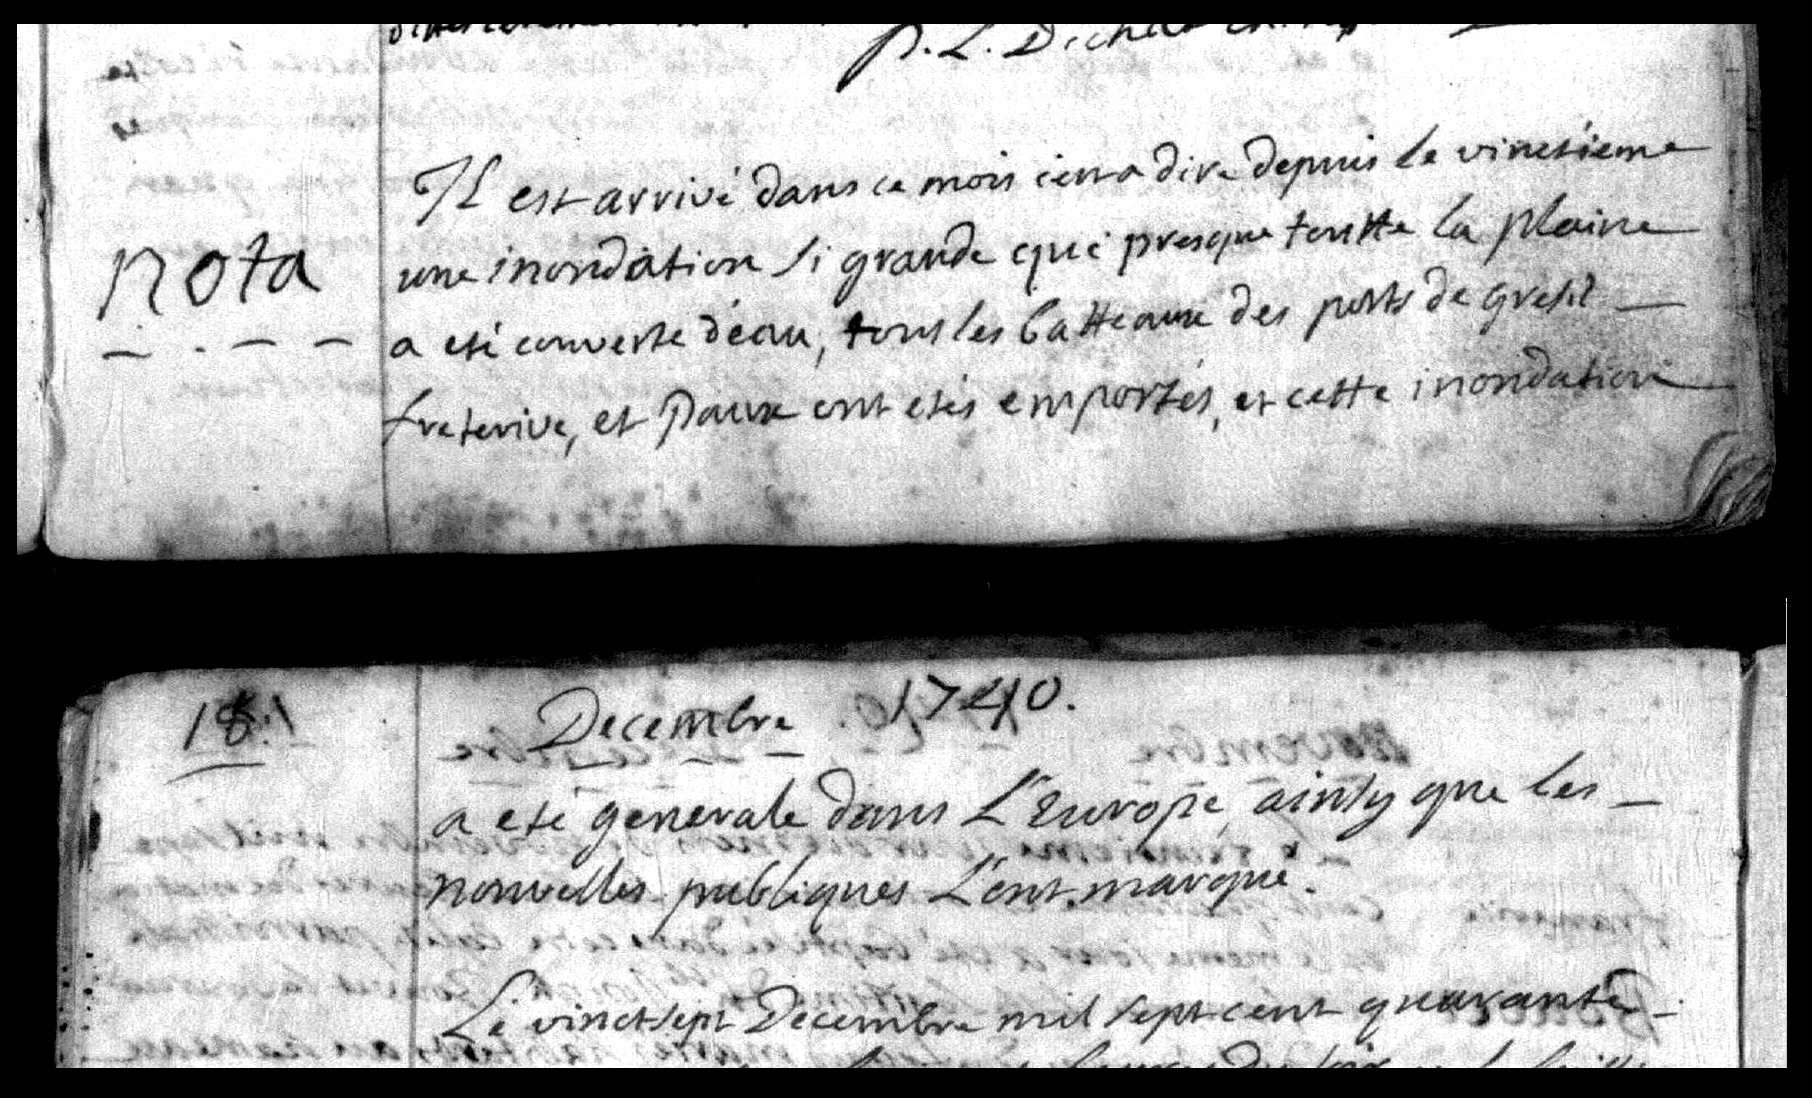 P. L.
Il est arrivé dans ce mois cest a dire depuis le vinctiéme
nota
une inondation si grande que presque toutte la plaine
a eté couverte déau, tous les batteaux des ports de gresil
freterive, et Paux ont etés emportés, et cette inondation
181
Decembre 1740.
a eté generale dans L'Europe, ainsy que les
nouvelles publiques L'ont marqué.
Le vinct sept Decembre mil sept cent quarante